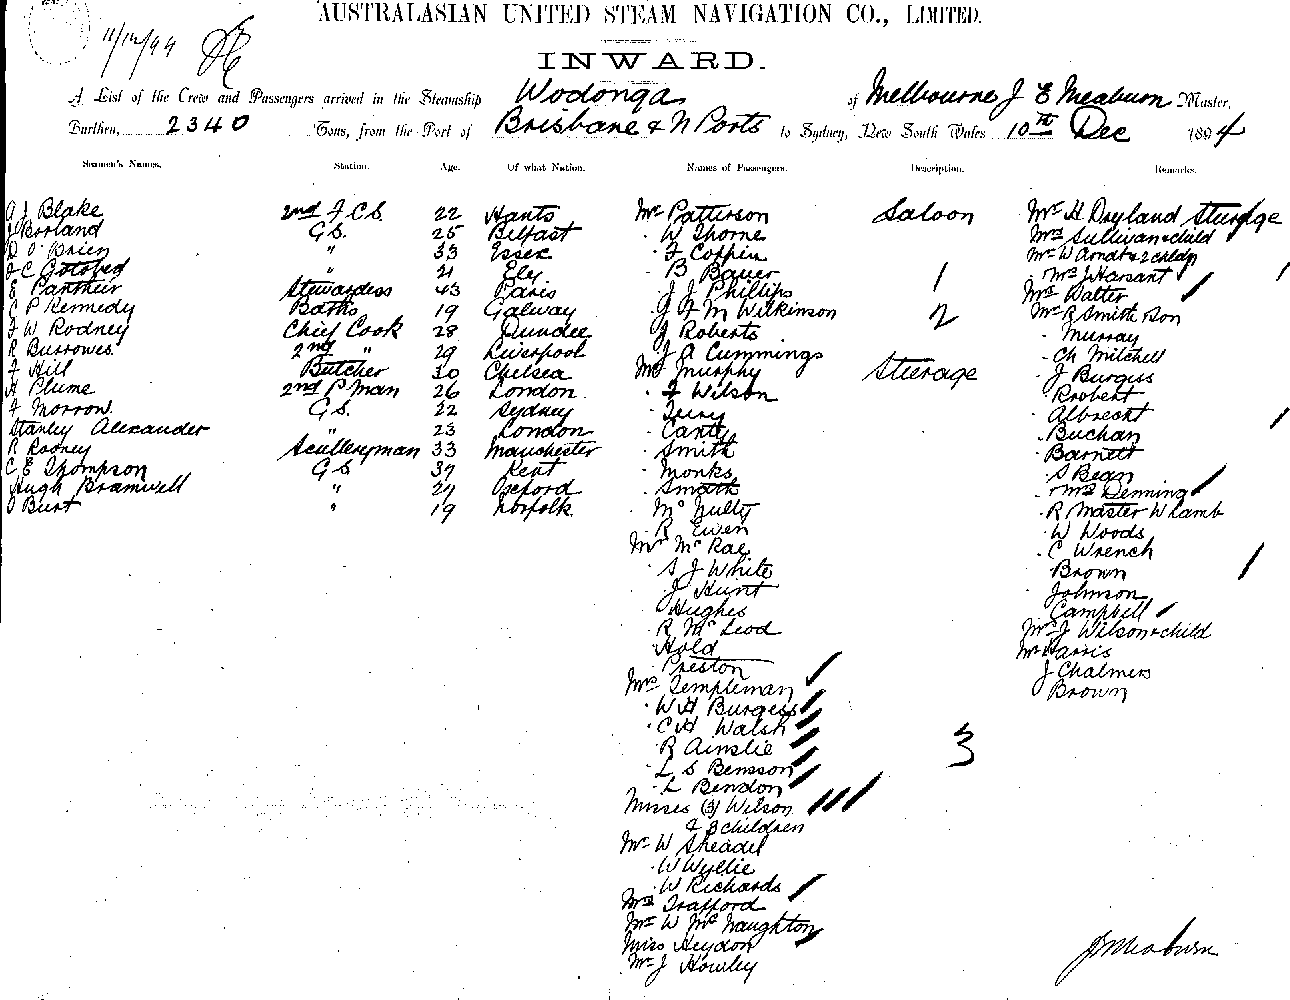 AUSTRALASIAN UNITED STEAM NAVIGATION CO., LIMITED.
11/12/94
INWARD.
A List of the Crew and Passengers arrived in the Steamship Wodonga of Melbourne J E Meaburn Master,
Burthen, 2340 Tons, from the Port of Brisbane & N Ports to Sydney, New South Wales 10th Dec 1894
Seamen's Names. Station. Age. Of what Nation. Names of Passengers. Description. Remarks.
A J Blake 2nd F.C.S. 22 Hants
J Borland G.S. 25 Belfast
D O'Brien " 33 Essex
J C Gotobed " 21 Ely
E Panthur Stewardess 43 Paris
C P Kennedy Baths 19 Galway
F W Rodney Chief Cook 28 Dundee
R Burrowes 2nd " 29 Liverpool
F Hill Butcher 30 Chelsea
H Plume 2nd P Man 26 London
F Morrow G.S. 22 Sydney
Stanley Alexander " 23 London
R Rooney Sculleryman 33 Manchester
C E Thompson G S 39 Kent
Hugh Bramwell " 24 Oxford
O Burt " 19 Norfolk
Mr Patterson Saloon
W Thorne
F Coffin
B Bauer 1
J J Phillips
J F M Wilkinson 2
J Roberts
J A Cummings
Mr Murphy Sturage
F Wilson
Terry
Canty
Smith
Monks
Smith
McNulty
R Ewen
Mr McRae
S J White
J Hunt
Hughes
R McLeod
Hold
Preston
Mrs Templeman
W H Burgess
C H Walsh
R Ainslie 3
L S Bensson
L Bendon
Misses (3) Wilson
& 3 children
Mr W Sheadel
W Wyllie
W Richards
Mrs Trafford
Mr W McNaughton
Miss Heydon
Mr J Howley
Mr H Dryland Sturage
Mrs Sullivan & child
Mr W Arndt & 2 child
Mrs J Harsant
Mrs Walter
Mr R Smith & son
Murray
Ch Mitchell
J Burgiss
Robert
Albrecht
Buchan
Barnett
S Bean
Mrs Denning
R Master W Lamb
W Woods
C Wrench
Brown
Johnson
Campbell
Mrs J Wilson & child
Mr Harris
J Chalmers
Brown
J E Meaburn